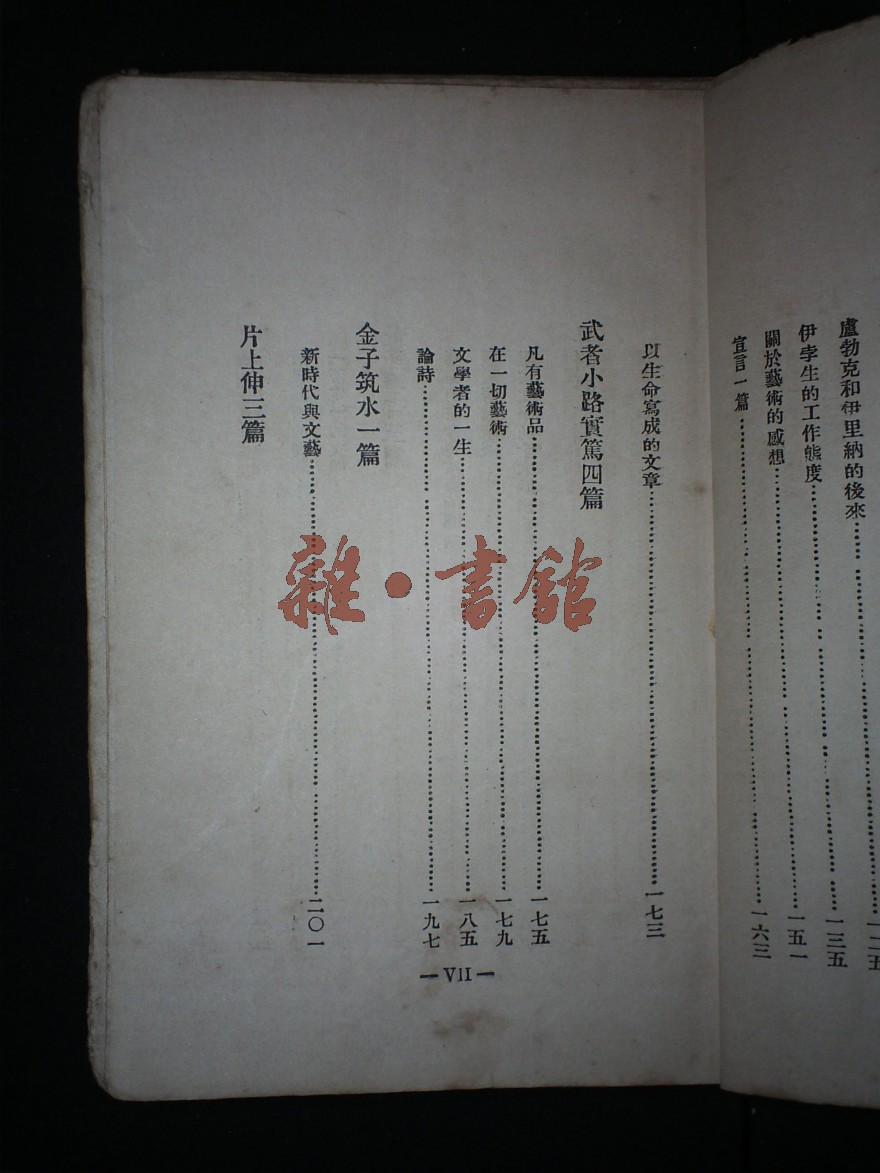 盧勃克和伊里納的後來……一二五
伊孛生的工作態度……一三五
關於藝術的感想……一五一
宣言一篇……一六三
以生命寫成的文章……一七三
武者小路實篤四篇
凡有藝術品……一七五
在一切藝術……一七九
文學者的一生……一八五
論詩……一九七
金子筑水一篇
新時代與文藝……二〇一
片上伸三篇
—VII—
雜·書館